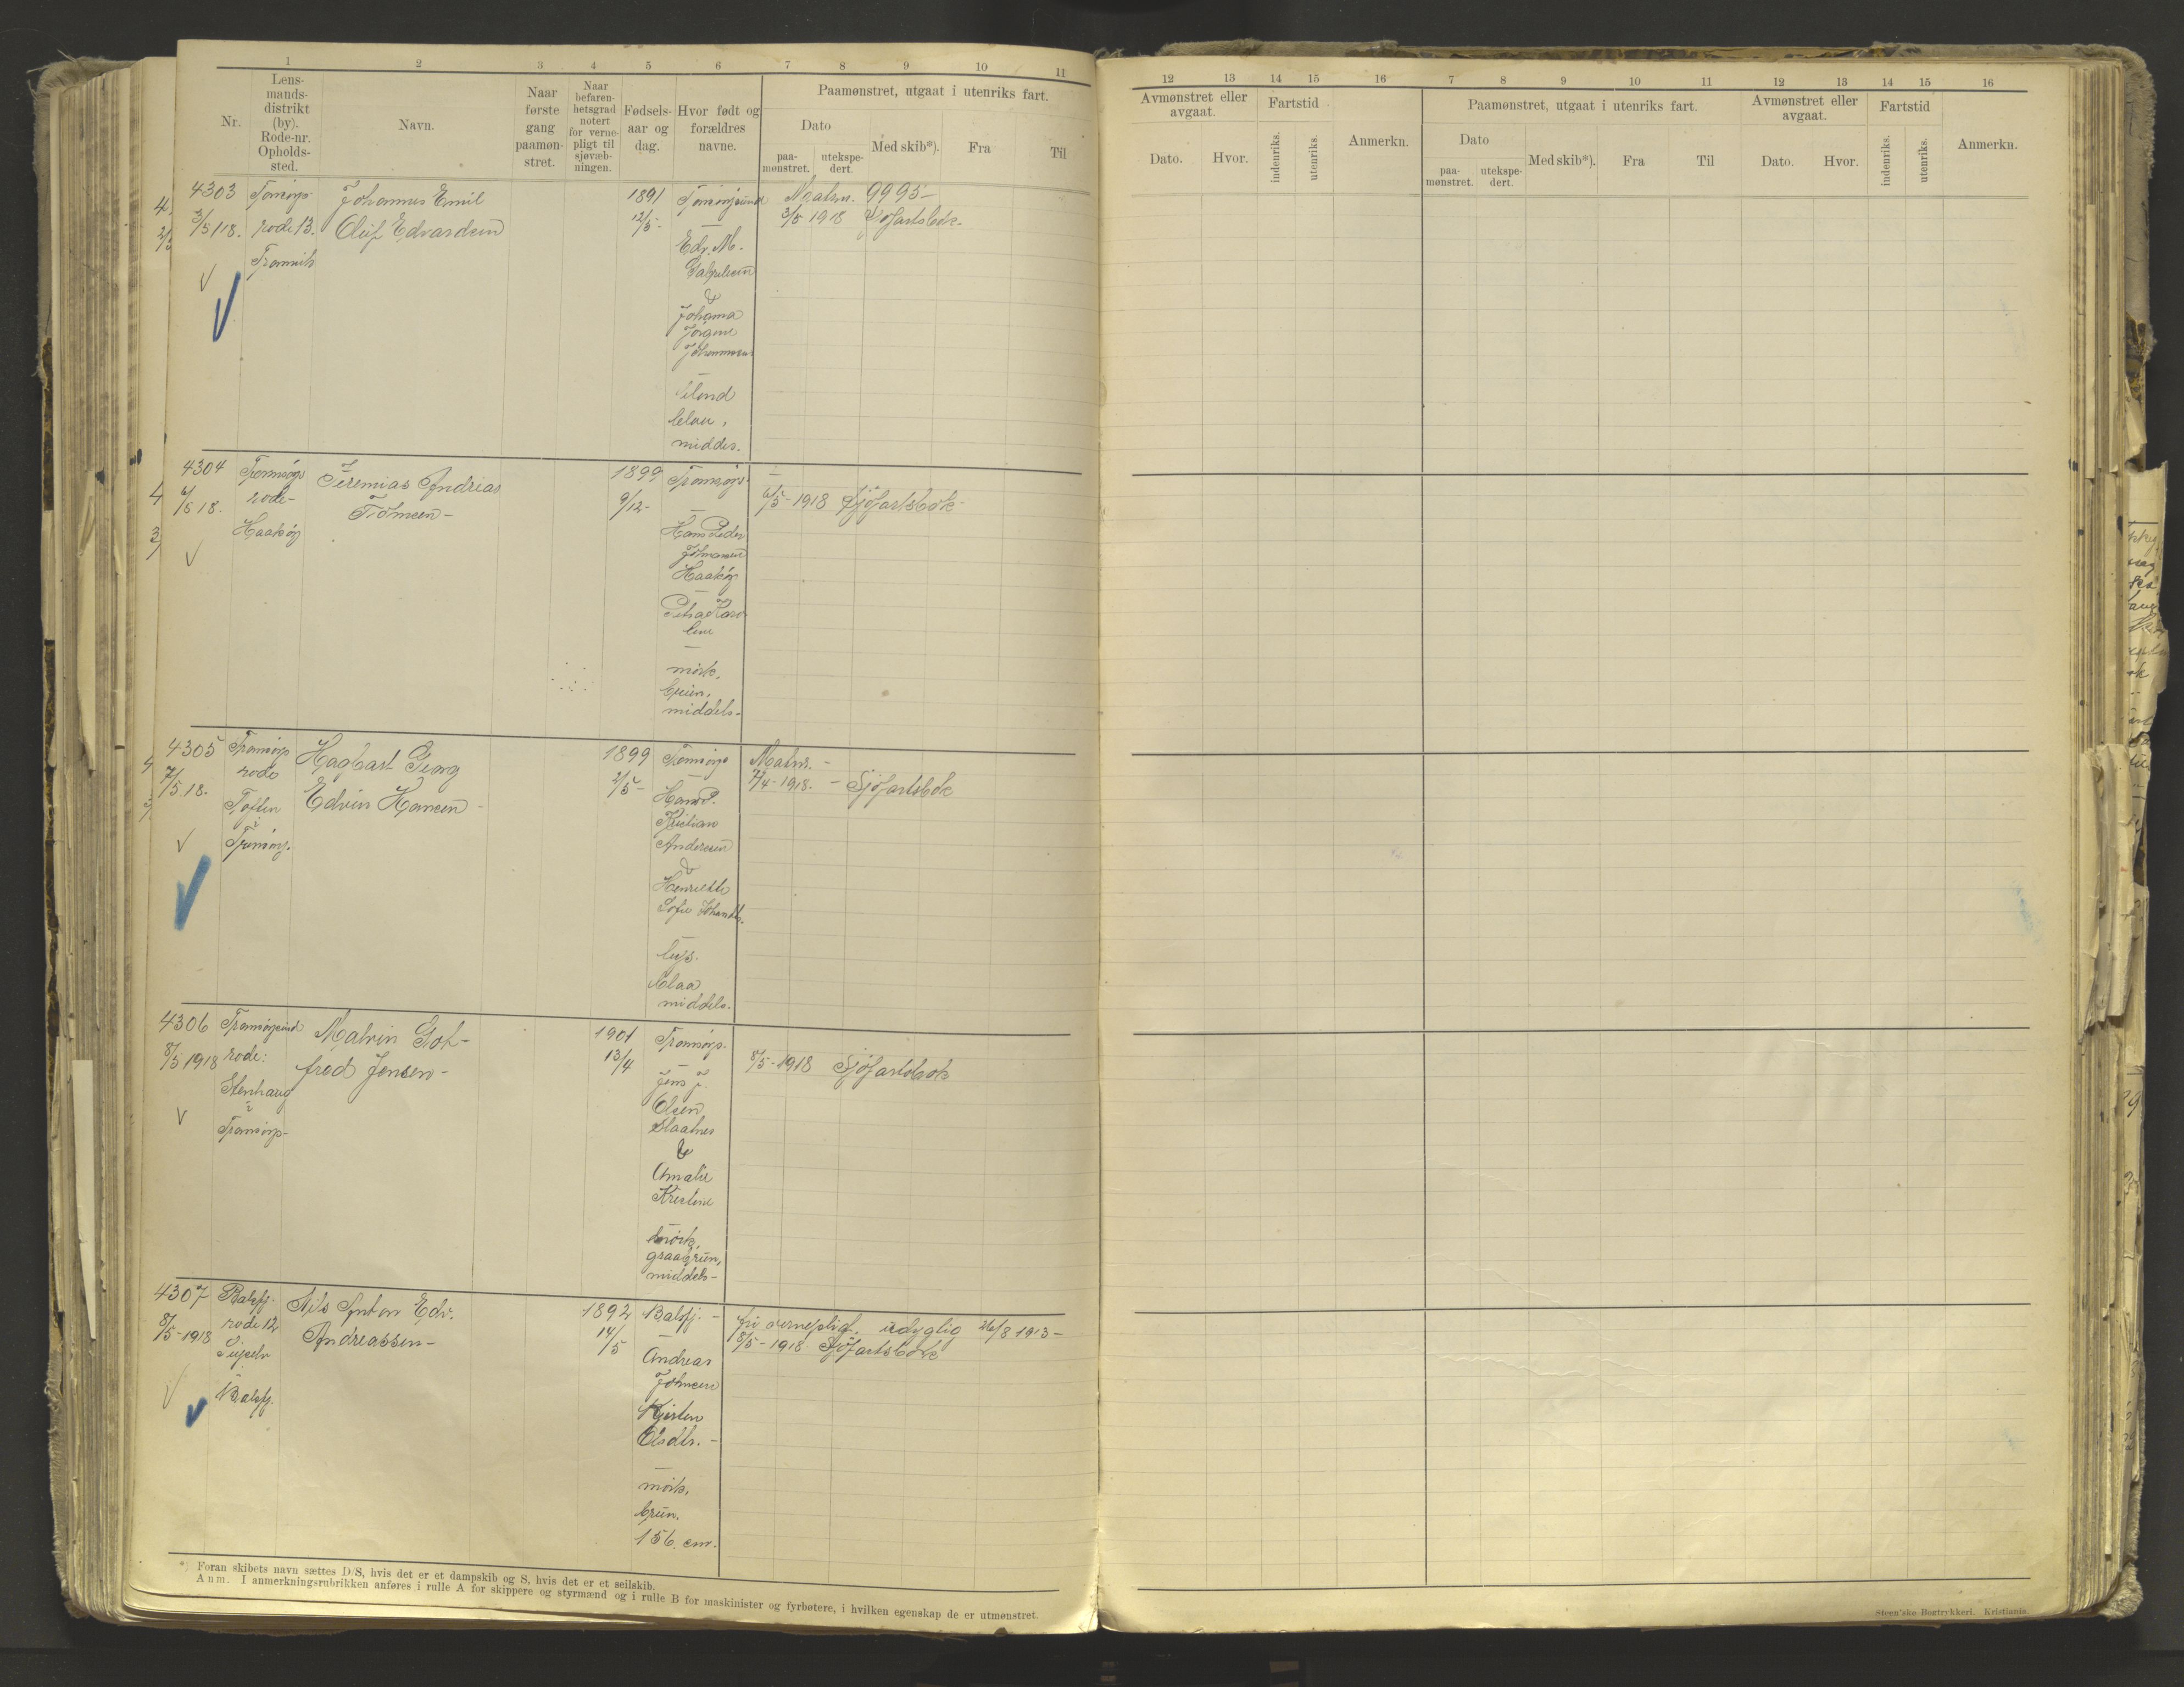 1 2 3 4 5 6 7 8 9 10 11
Nr.
Lens-
mands-
distrikt
(by).
Rode-nr.
Opholds-
sted.
Navn.
Naar
første
gang
paamøn-
stret.
Naar
befaren-
hetsgrad
notert
for verne-
pligt til
sjøvæb-
ningen.
Fødsels-
aar og
dag.
Hvor født og
forældres
navne.
Paamønstret, utgaat i utenriks fart.
Dato
paa-
mønstret.
utekspe-
dert.
Med skib*).
Fra
Til
4303
3/5 18.
Tromsøys
rode 13.
Johannes Emil
Oluf Edvardsen
1891
12/5-
Tromsøysund
Edv. M.
Gabrielsen
&
Johanna
Jørgine
Johannesen
blond
blaa,
middels.
Matrs. 9995-
3/5 1918 Sjøfartsbok.
4304
6/5 18.
Tromsøys
rode-
Haakøy
Jeremias Andreas
Johnsen-
1899
9/12-
Tromsøys-
Hans Peder
Johnsen
Haakøy
mørk,
brun,
middels-
6/5-1918 Sjøfartsbok-
4305
7/5 18.
Tromsøys
rode
Toften
i
Tromsøys.
Hagbart Georg
Edvin Hansen-
1899
2/5-
Tromsøys
Hans P.
Kristian
Andersen
&
Henriette
Sofie
lys.
blaa
middels.
Matrs.-
7/4-1918.- Sjøfartsbok
4306
8/5 1918
Tromsøysund
rode:
Stenhaug
i
Tromsøys-
Malvin Got-
fred Jensen-
1901
13/4
Tromsøys-
Jens J.
Olsen
Slaatnes
&
Amalie
Kristine
mørk,
graabrun,
middels-
8/5-1918 Sjøfartsbok
4307
8/5-1918
Balsfj.
rode 12
Balsfj.
Nils Anton Edv.
Andreassen-
1892
14/5
Balsfj.-
Andreas
Johnsen
Kjersten
Olsdtr.-
mørk,
brun.
156. cm.
fri vernepligt. udyglig 26/8 1913-
8/5-1918 Sjøfartsbok
*) Foran skibets navn sættes D/S, hvis det er et dampskib og S, hvis det er et seilskib.
Anm. I anmerkningsrubrikken anføres i rulle A for skippere og styrmænd og i rulle B for maskinister og fyrbøtere, i hvilken egenskap de er utmønstret.
12 13 14 15 16 7 8 9 10 11 12 13 14 15 16
Avmønstret eller
avgaat.
Dato.
Hvor.
Fartstid
indenriks.
utenriks.
Anmerkn.
Paamønstret, utgaat i utenriks fart.
Dato
paa-
mønstret.
utekspe-
dert.
Med skib*).
Fra
Til
Avmønstret eller
avgaat.
Dato.
Hvor.
Fartstid
indenriks.
utenriks.
Anmerkn.
Steen'ske Bogtrykkeri. Kristiania.